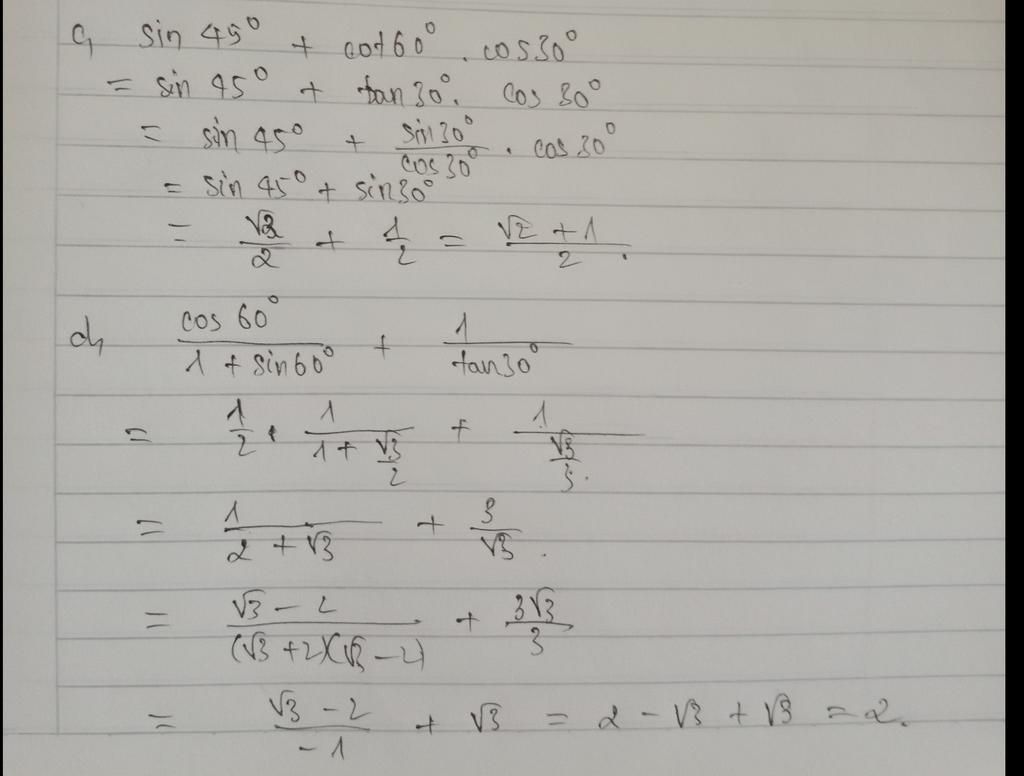 c, sin 45° + cot 60° . cos 30°
= sin 45° + tan 30° . cos 30°
= sin 45° + sin 30° / cos 30° . cos 30°
= sin 45° + sin 30°
= √2/2 + 1/2 = (√2 + 1)/2 .
d, cos 60° / (1 + sin 60°) + 1 / tan 30°
= 1/2 . 1/(1 + √3/2) + 1/(√3/3) .
= 1/(2 + √3) + 3/√3 .
= (√3 - 2)/((√3 + 2)(√3 - 2)) + 3√3/3
= (√3 - 2)/(-1) + √3 = 2 - √3 + √3 = 2.